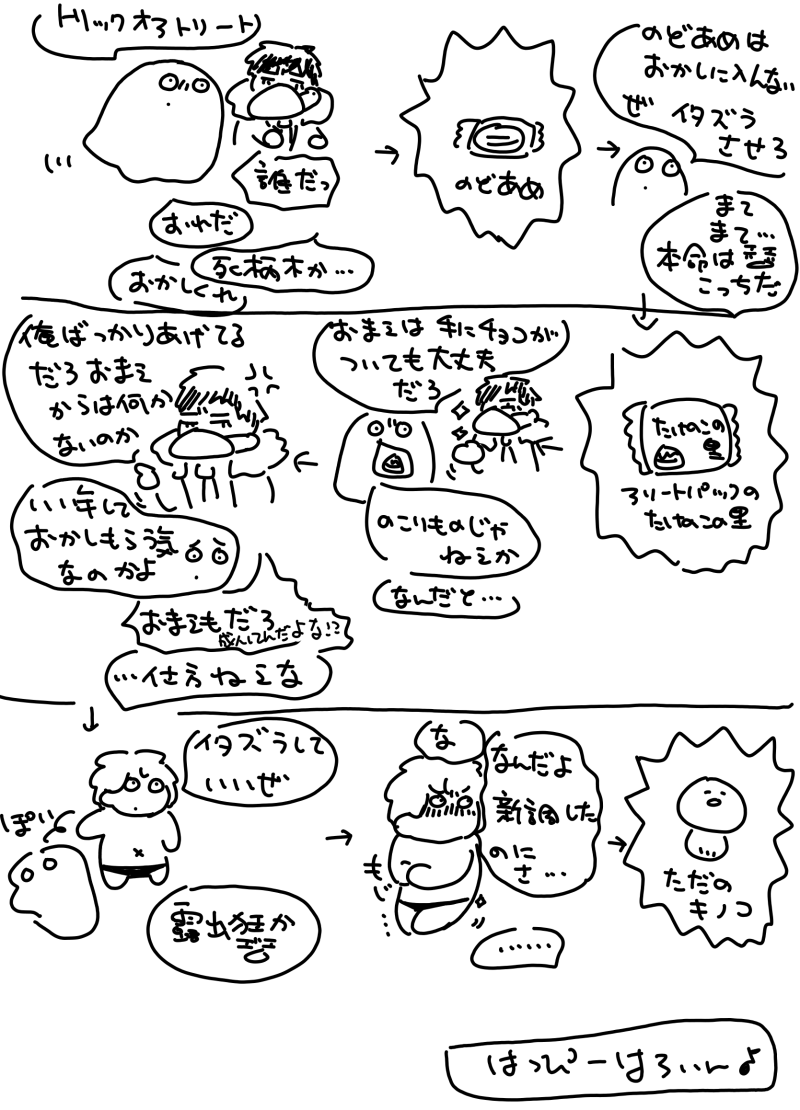 トリックオアトリート
誰だっ
おれだ
死柄木か…
おかしくれ
のどあめ
のどあめは
おかしに入んない
ぜ イタズラ
させろ
まて
まて…
本命は
こっちだ
たけのこの
里
アソートパックの
たけのこの里
おまえは手にチョコが
ついても大丈夫
だろ
のこりものじゃ
ねえか
なんだと…
俺ばっかりあげてる
だろおまえ
からは何か
ないのか
いい年して
おかしもらう気
なのかよ
おまえもだろ
成人してんだよな!?
…仕方ねえな
ぽい
イタズラして
いいぜ
露出狂か
な
なんだよ
新調した
のに
さ…
もじ…
……
ただの
キノコ
はっぴーはろいん♪